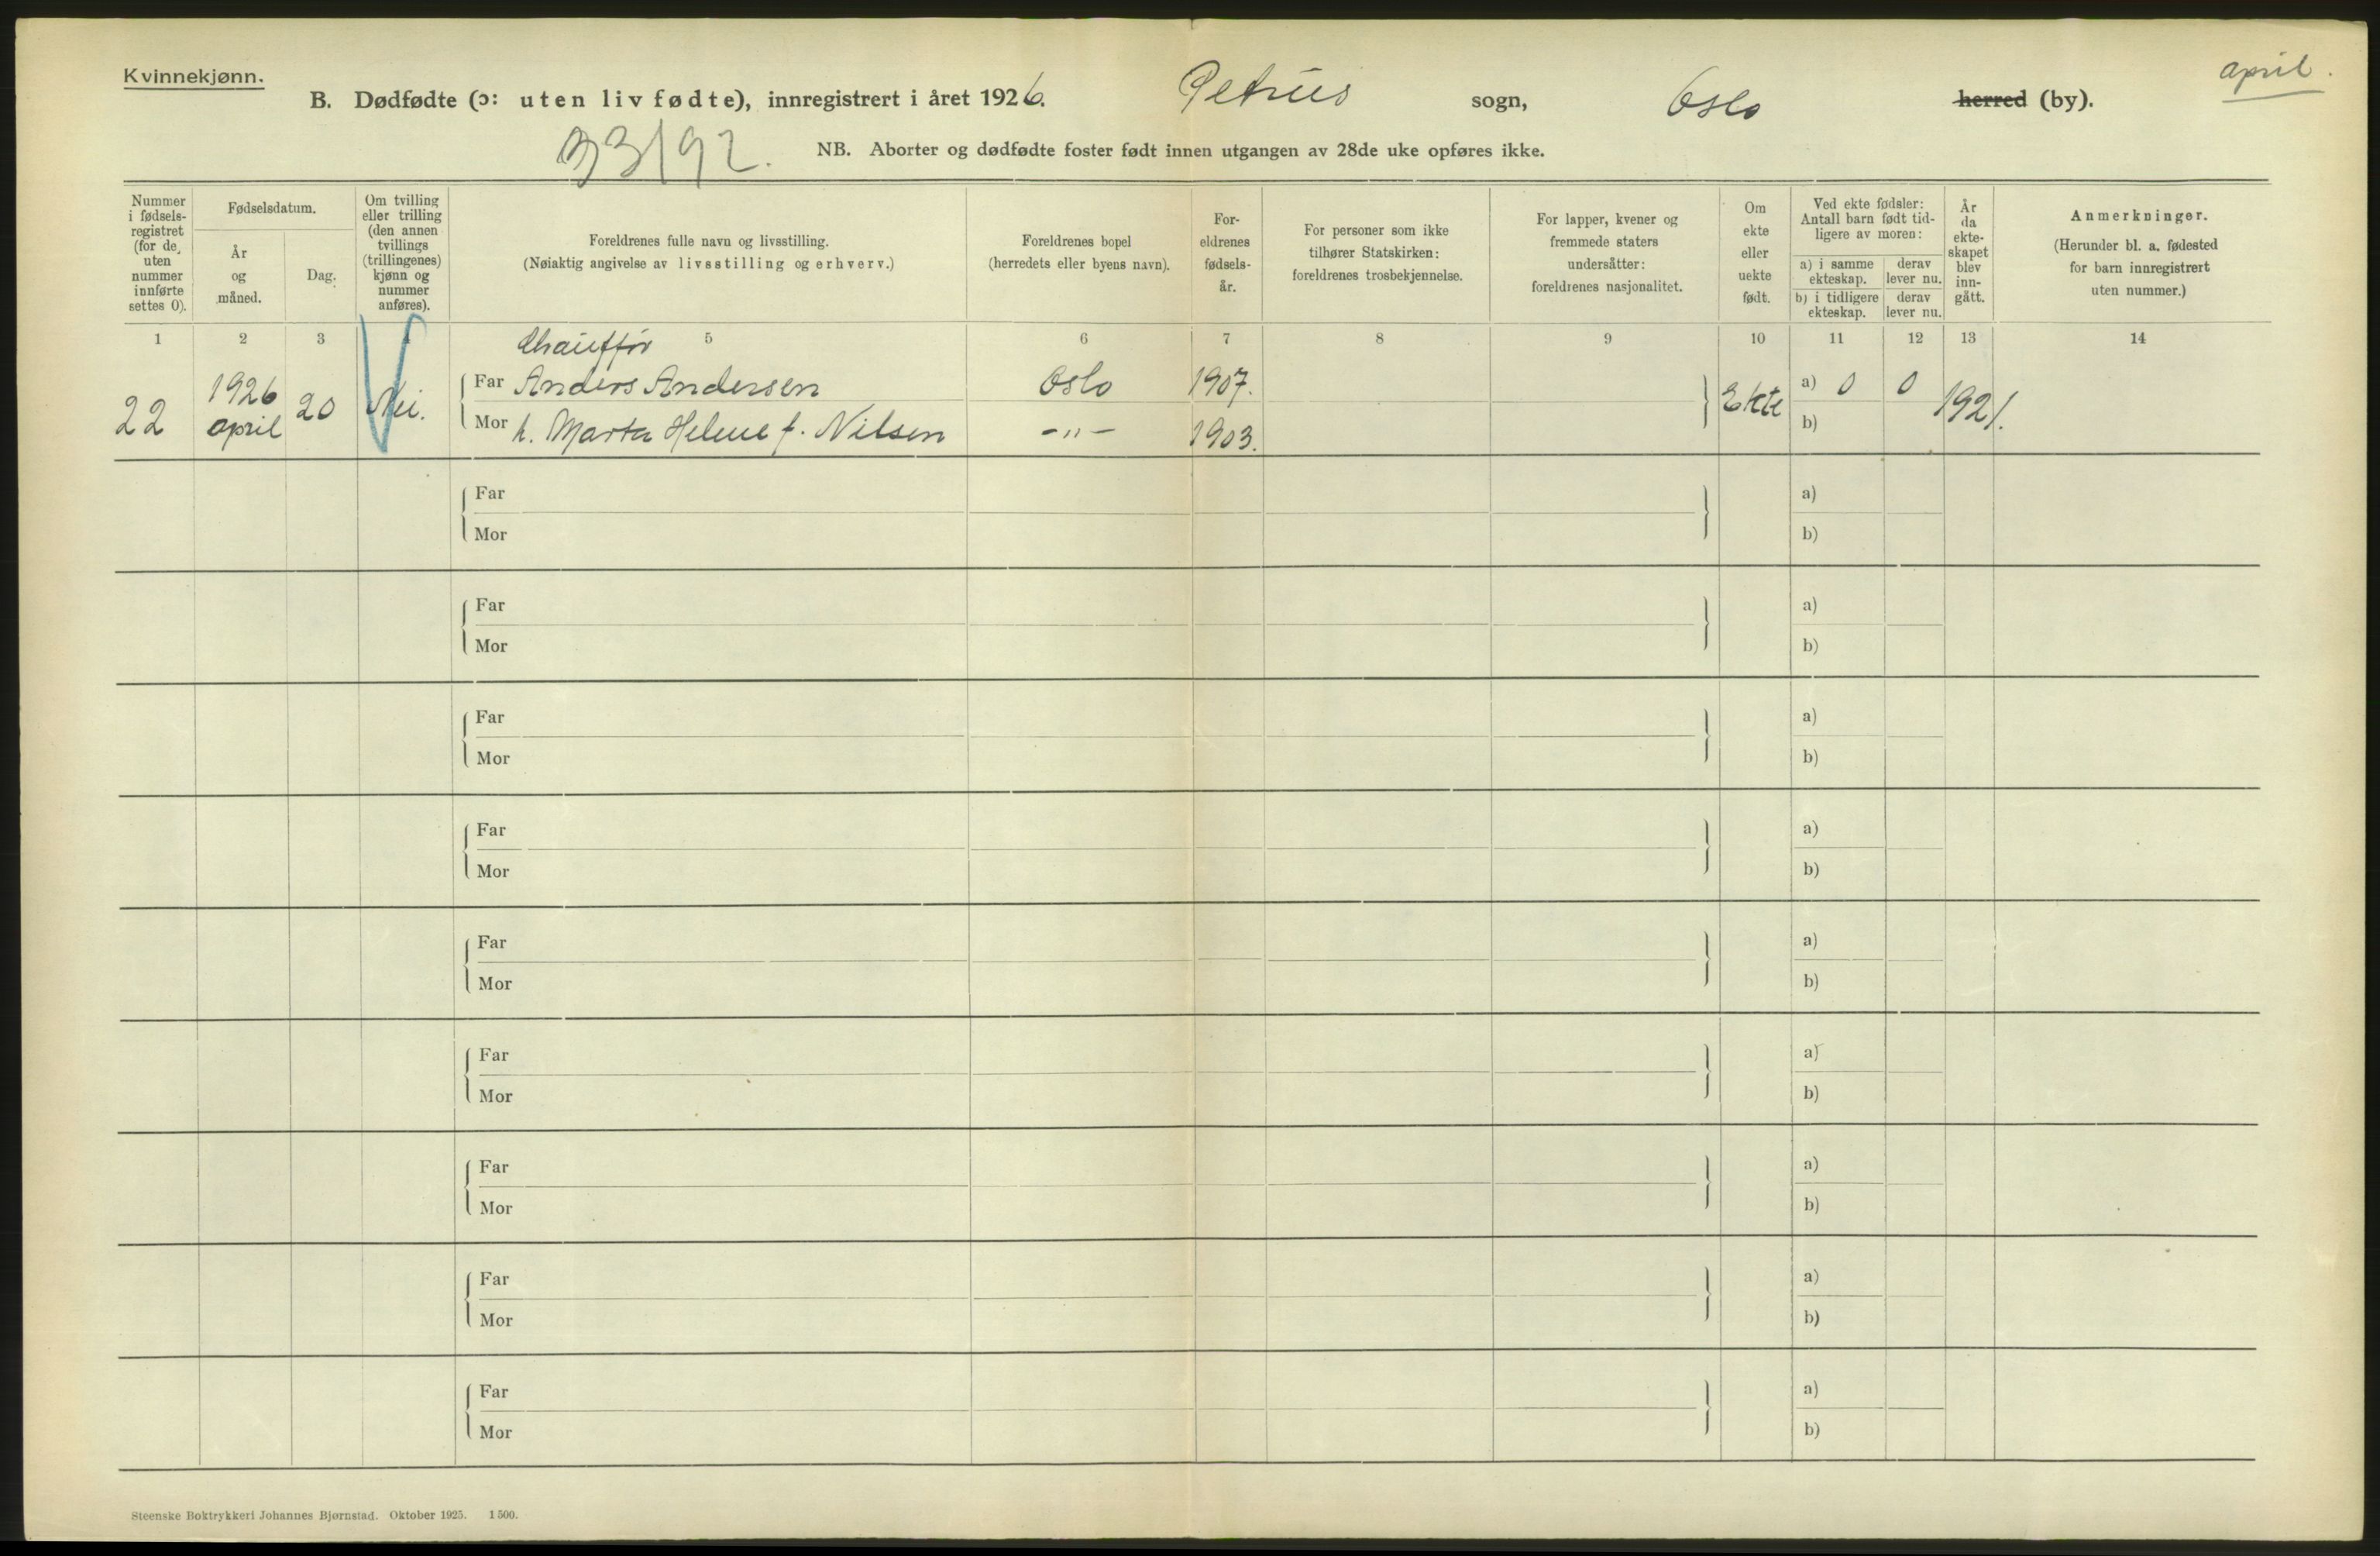 Kvinnekjønn.
april.
B. Dødfødte (ɔ: uten liv fødte), innregistrert i året 1926. Petrus sogn, Oslo herred (by).
33/92.
NB. Aborter og dødfødte foster født innen utgangen av 28de uke opføres ikke.
Nummer
i fødsels-
registret
(for de
uten
nummer
innførte
settes 0).
Fødselsdatum.
År
og
måned.
Dag.
Om tvilling
eller trilling
(den annen
tvillings
(trillingenes)
kjønn og
nummer
anføres).
Foreldrenes fulle navn og livsstilling.
(Nøiaktig angivelse av livsstilling og erhverv.)
Foreldrenes bopel
(herredets eller byens navn).
For-
eldrenes
fødsels-
år.
For personer som ikke
tilhører Statskirken:
foreldrenes trosbekjennelse.
For lapper, kvener og
fremmede staters
undersåtter:
foreldrenes nasjonalitet.
Om
ekte
eller
uekte
født.
Ved ekte fødsler:
Antall barn født tid-
ligere av moren:
a) i samme
ekteskap.
derav
lever nu.
b) i tidligere
ekteskap.
derav
lever nu.
År
da
ekte-
skapet
blev
inn-
gått.
Anmerkninger.
(Herunder bl. a. fødested
for barn innregistrert
uten nummer.)
1 2 3 5 6 7 8 9 10 11 12 13 14
Chauffør
22 1926 april 20 Nei.
Far Anders Andersen Oslo 1907.
Mor h. Marta Helene f. Nilsen -"- 1903.
Ekte a) 0 0 1921.
b)
Far a)
Mor b)
Far a)
Mor b)
Far a)
Mor b)
Far a)
Mor b)
Far a)
Mor b)
Far a)
Mor b)
Far a)
Mor b)
Far a)
Mor b)
Far a)
Mor b)
Steenske Boktrykkeri Johannes Bjørnstad. Oktober 1925. 1 500.